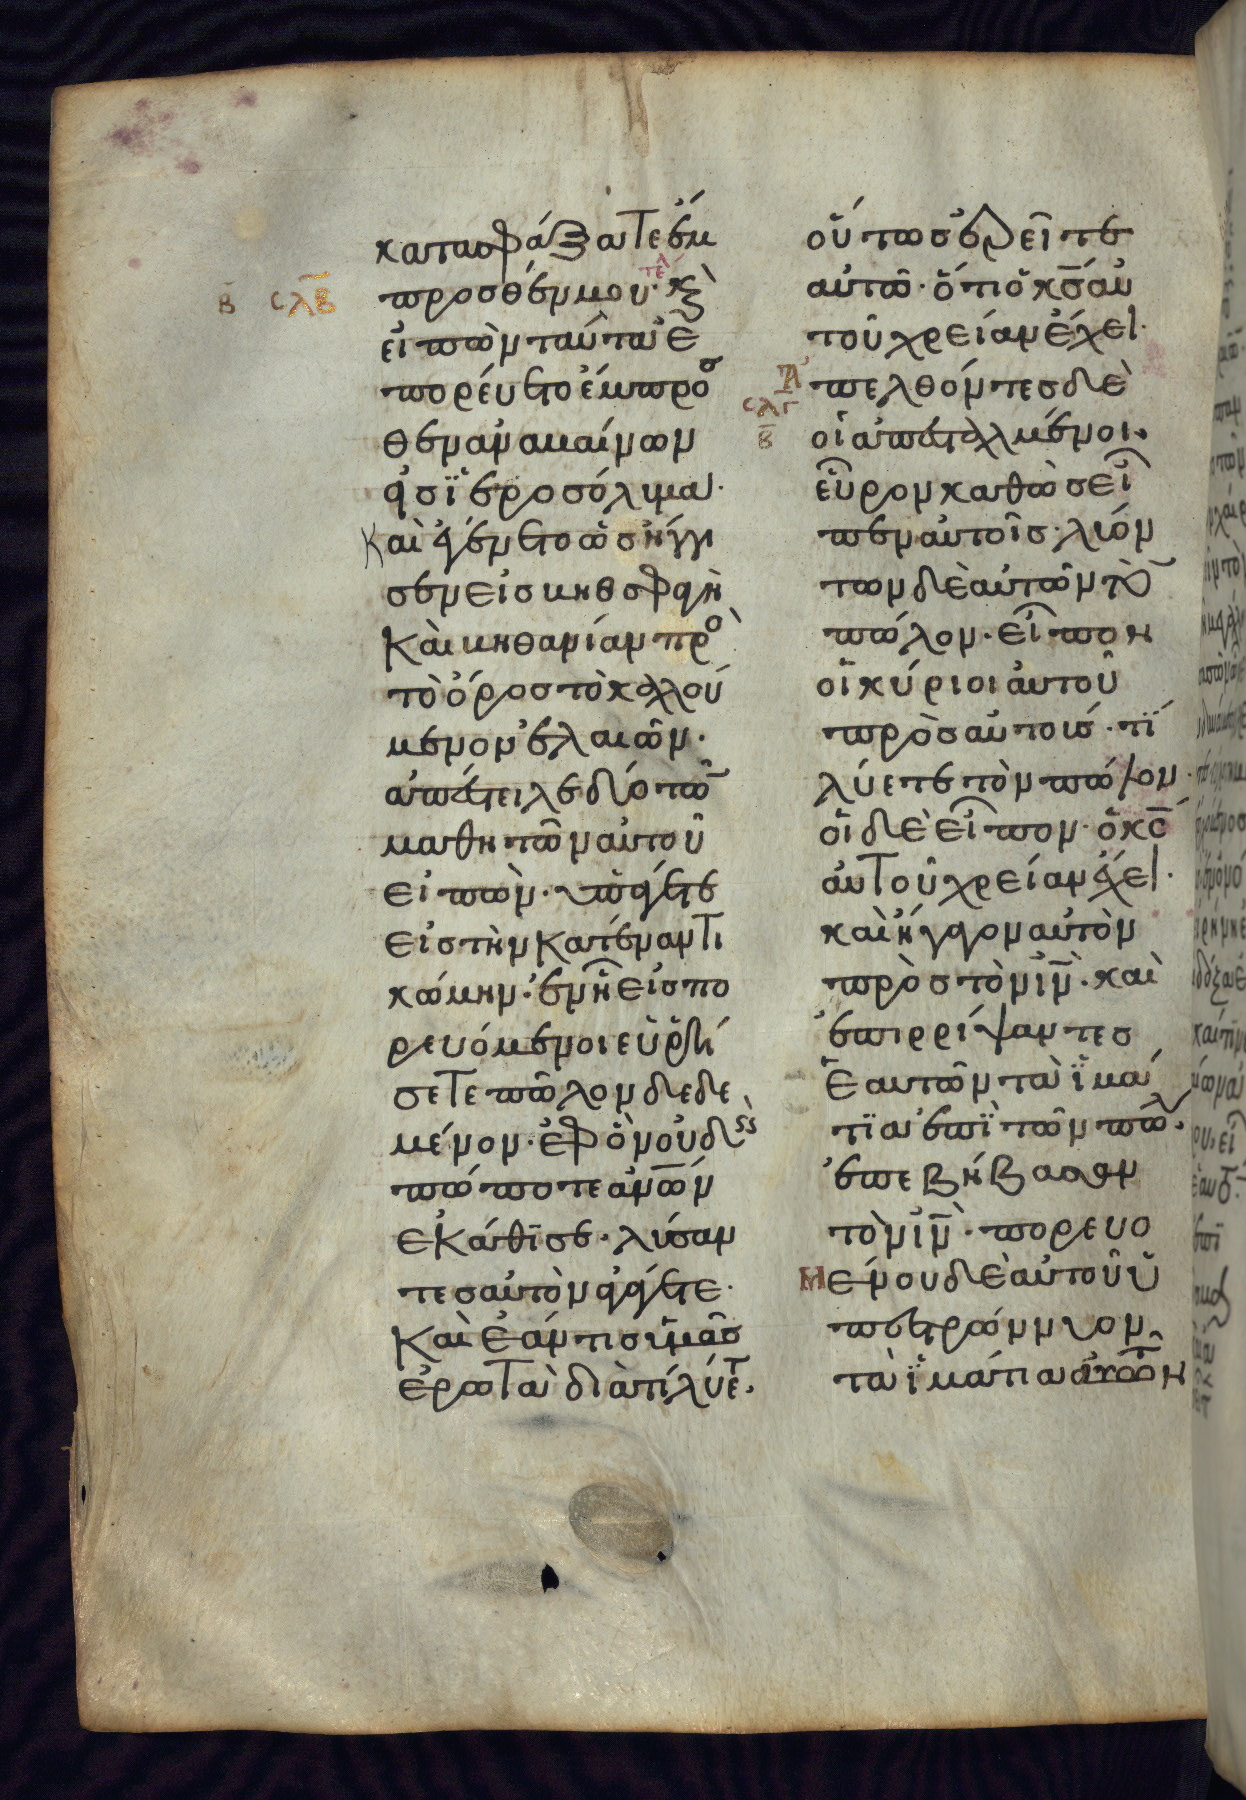 κατασφάξατε ἔμ
προσθέν μου· τέλ κ(αὶ)
Β σλβ
εἰπὼν ταῦτα ἐ
πορεύετο ἔμπρο
σθεν ἀναβαίνων
εἰς ϊεροσόλυμα·
Καὶ ἐγένετο ὡς ἤγγι
σεν εἰς βηθσφαγὴ
καὶ βηθανίαν πρὸ
τὸ ὄρος τὸ καλού
μενον ἐλαιῶν·
ἀπέστειλε δύο τῶ
μαθητῶν αὐτοῦ
εἰπὼν· ὑπάγετε
εἰς τὴν κατέναντι
κώμην· ἐν ἧ εἰσπο
ρευόμενοι εὑρή
σετε πῶλον δεδε
μένον· ἐφ' ὃν οὐδεὶς
πώποτε ἀνῶν
ἐκάθισε· λύσαν
τες αὐτὸν ἀγάγετε·
Καὶ ἐάν τις ϋμᾶς
ἐρωτᾶ διατί λύετ·
οὕτως ἐρεῖτε
αὐτῶ· ὅτι ὁ κς αὐ
τοῦ χρείαν ἔχει·
Ἀπελθόντες δὲ
σλγ
Β
οἱ ἀπεσταλμένοι·
εὗρον καθὼς εἶ
πεν αὐτοῖς· λυόν
των δὲ αὐτῶν τὸ
πῶλον· εἶπον
οἱ κύριοι αὐτοῦ
πρὸς αὐτούς· τί
λύετε τὸν πῶλον·
οἱ δὲ εἶπον· ὁ κς
αὐτοῦ χρείαν ἔχει·
καὶ ἤγαγον αὐτὸν
πρὸς τὸν ιν· καὶ
ἐπιρρίψαντες
ἑαυτῶν τὰ ϊμά
τια ἐπὶ τὸν πῶλ·
ἐπεβίβασαν
τὸν ιν· πορευο
μένου δὲ αὐτοῦ ὑ
πεστρώννυον
τὰ ϊμάτια αὐτῶν